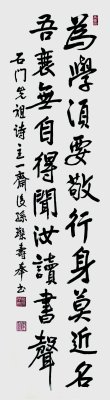 為學須要敬行身莫近名
吾衰無自得聞汝讀書聲
石門先祖詩主一齋后孫聖壽奉書